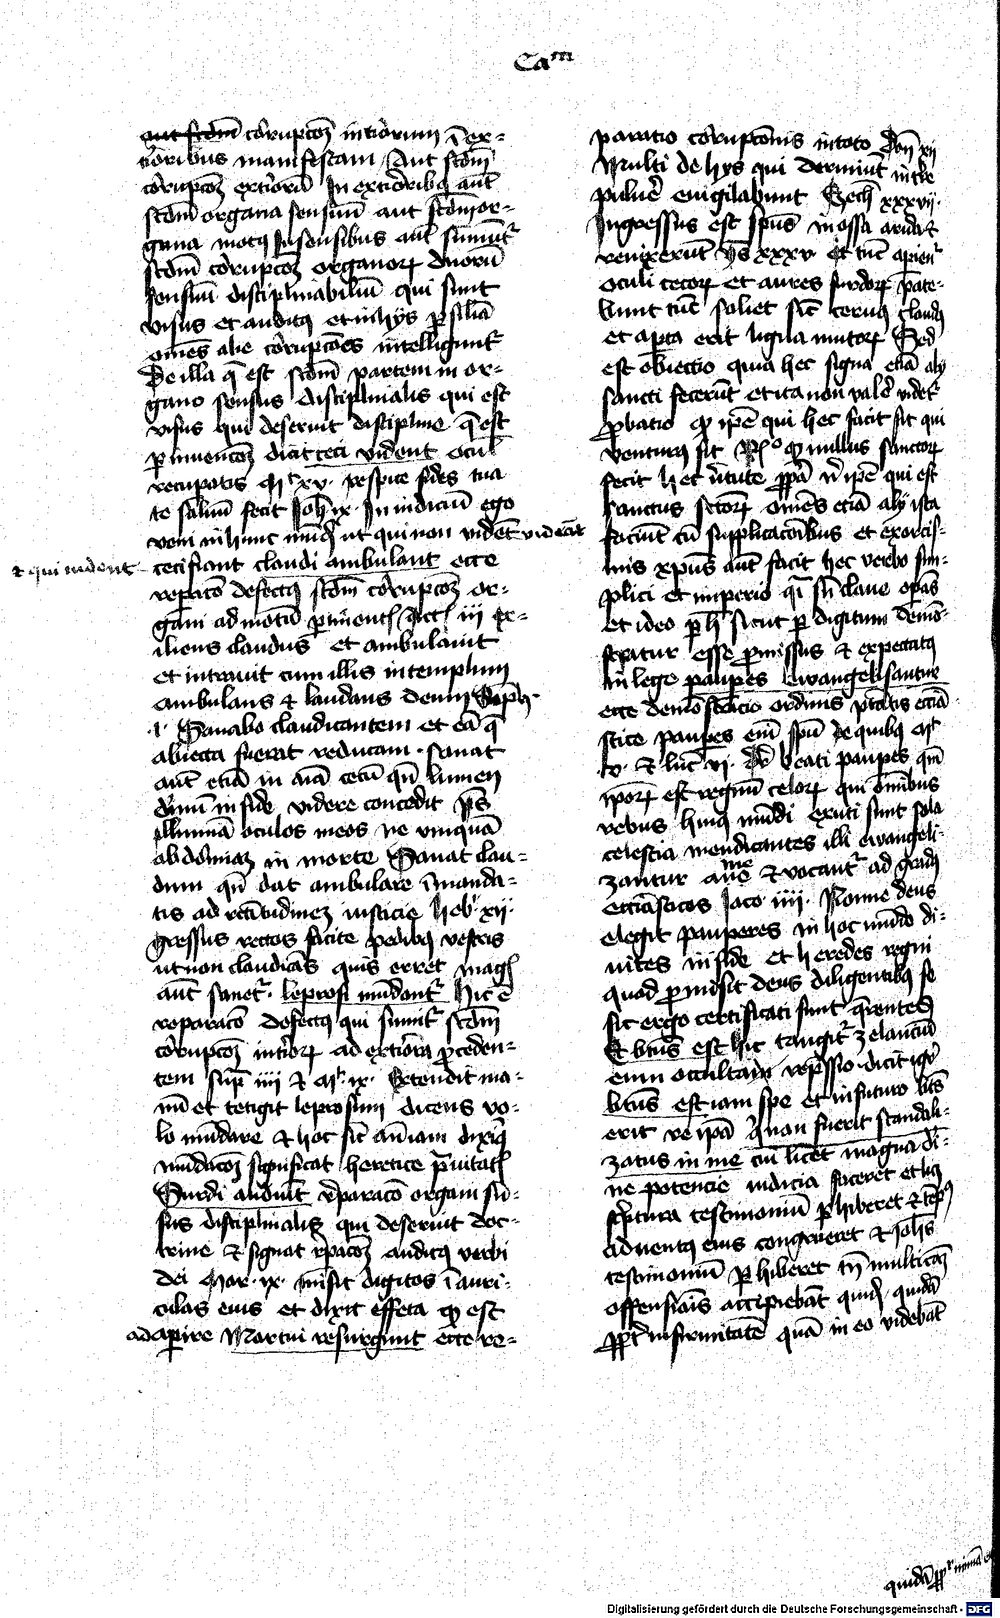 Ca^m
aut scdm̄ corrupcoȝ interiorum ī ex-
terioribus manifestam / Aut scdm̄
corrupcoȝ exteriorū In exteriorib9 aut
scdm̄ organa sensuum aut scdm̄ or-
gana mot9 Insensibus aut sumunt^r
scdm̄ corrupcoȝ organorum duorū
sensuū disciplinabiliū qui sunt
visus et audit9 et in hys per siliā
omēs alie corrupcōes intelligunt^r
De illa q̄ est scdm̄ partem in or-
gano sensus disciplinalis qui est
visus qui deseruit discipline q̄ est
per inuencoȝ dicit ceci vident ocul
recuperatis M^r xv. respice fides tua
te saluū fecit Joh̄ ix. In iudiciū ego
veni in hunc mūdū ut qui non vidēt videāt
et qui vident
ceci fiant claudi ambulant ecce
reparacō defect9 scdm̄ corrupcoȝ or-
gani ad motū pertinent Act iii ex-
iliens claudus et ambulauit
et intrauit cum illis in templum
ambulans et laudans deum Soph
.i. Sanabo claudicantem et eā q̄
abiecta fuerat reducam . Sanat
aut etiā in aīa cecū qn̄ lumen
diuinū in fide videre concedit ps̄
Illuminā oculos meos ne vnquā
obdormiaȝ in morte Sanat clau-
dum qn̄ dat ambulare ī manda-
tis ad rectitudineȝ iusticie Heb. xii.
gressus rectos facite pedib9 vestris
ut non claudicās quis erret mag
aut sanet^r. leprosi mūdant^r Hic ē
reparacō defect9 qui sumit^r scdm̄
corrupcoȝ interiorum ad exteriora proceden-
tem sup iiii et M^r ix. Extendit ma-
nū et tetigit leprosum dicens vo-
lo mūdare et hoc sic aūiam dixit
mūdacoȝ significat heretice prauitat
Surdi audiūt reparacō organi sen-
sus disciplinalis qui deseruit doc-
trine et signat reparacoȝ audit9 verbi
dei Mar. ix. misit digitos ī auri-
culas eius et dixit effeta quod est
adaperire Mortui resurgunt ecce re-
paratio corrupcōnis in toto Dan̄ xii
Multi de hys qui dormiūt in tre
puluere euigilabunt Ezech xxxvii.
Ingressus est spūs in ossa arida et
reuixerūt ys xxxv Et tūc aperient^r
oculi cecorum et aures surdorum pate-
bunt tūc saliet sicut ceruus claud9
et apta erit ligua mutorum Sed
est obiectio quia hec signa etiā aly
sancti fecerūt et ita non valet videt^r
probatio quod ipse qui hec facit sit qui
ventur9 sit R^o quod nullus sanctorum
fecit hec virtute propria nisi ipse qui est
sanctus sctorum omēs etiā aly ista
faciūt cū supplicacōibus et exorcis-
mis xpūs aūt facit hec verbo sim-
plici et imperio
et ideo per h sicut per digitum demō-
stratur esse promissus et expectat9
in lege pauperes Ewangelisantur
ecce demōstracio ordinis ptatis eccia
stice pauperes em̄ spū de quib9 M^r
.v. et luc vi. dr̄ beati pauperes qm̄
ipsorum est regnū celorum qui omibus
rebus hui9 mūdi exuti sunt sola
celestia mendicantes illi ewangeli-
zantur a me et vocant^r ad grad9
eccliasticos Jaco iiii. Nonne deus
elegit pauperes in hoc mūdo di-
uites in fide et heredes regni
quod promisit deus diligentib9 se
sic ergo certificati sunt
Et btūs est hic tangit^r zelanciū
eum occultam repressio dicit ig^r
btūs est iam spe et in futuro btūs
erit re ipsa Qui non fuerit scandali-
zatus in me cui licet magna di-
ne potencie indicia faceret et licet
scriptura testimoniū perhiberet et
aduent9 eius congrueret et Johis
testimoniū perhiberet tn̄ multi
offensionis accipiebāt quid quidā
propter infirmitatē quā in eo videbāt
quidā propter
Digitalisierung gefördert durch die Deutsche Forschungsgemeinschaft - DFG